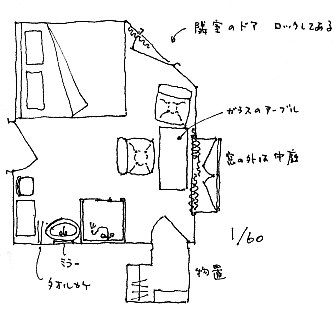 隣室のドア ロックしてある
ガラスのテーブル
窓の外は中庭
1/60
物置
ミラー
タオルカケ